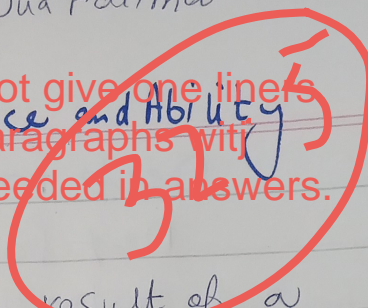 ot give one liners
ce and Ability
aragraphs witj
eeded in answers.
32.5
result of a